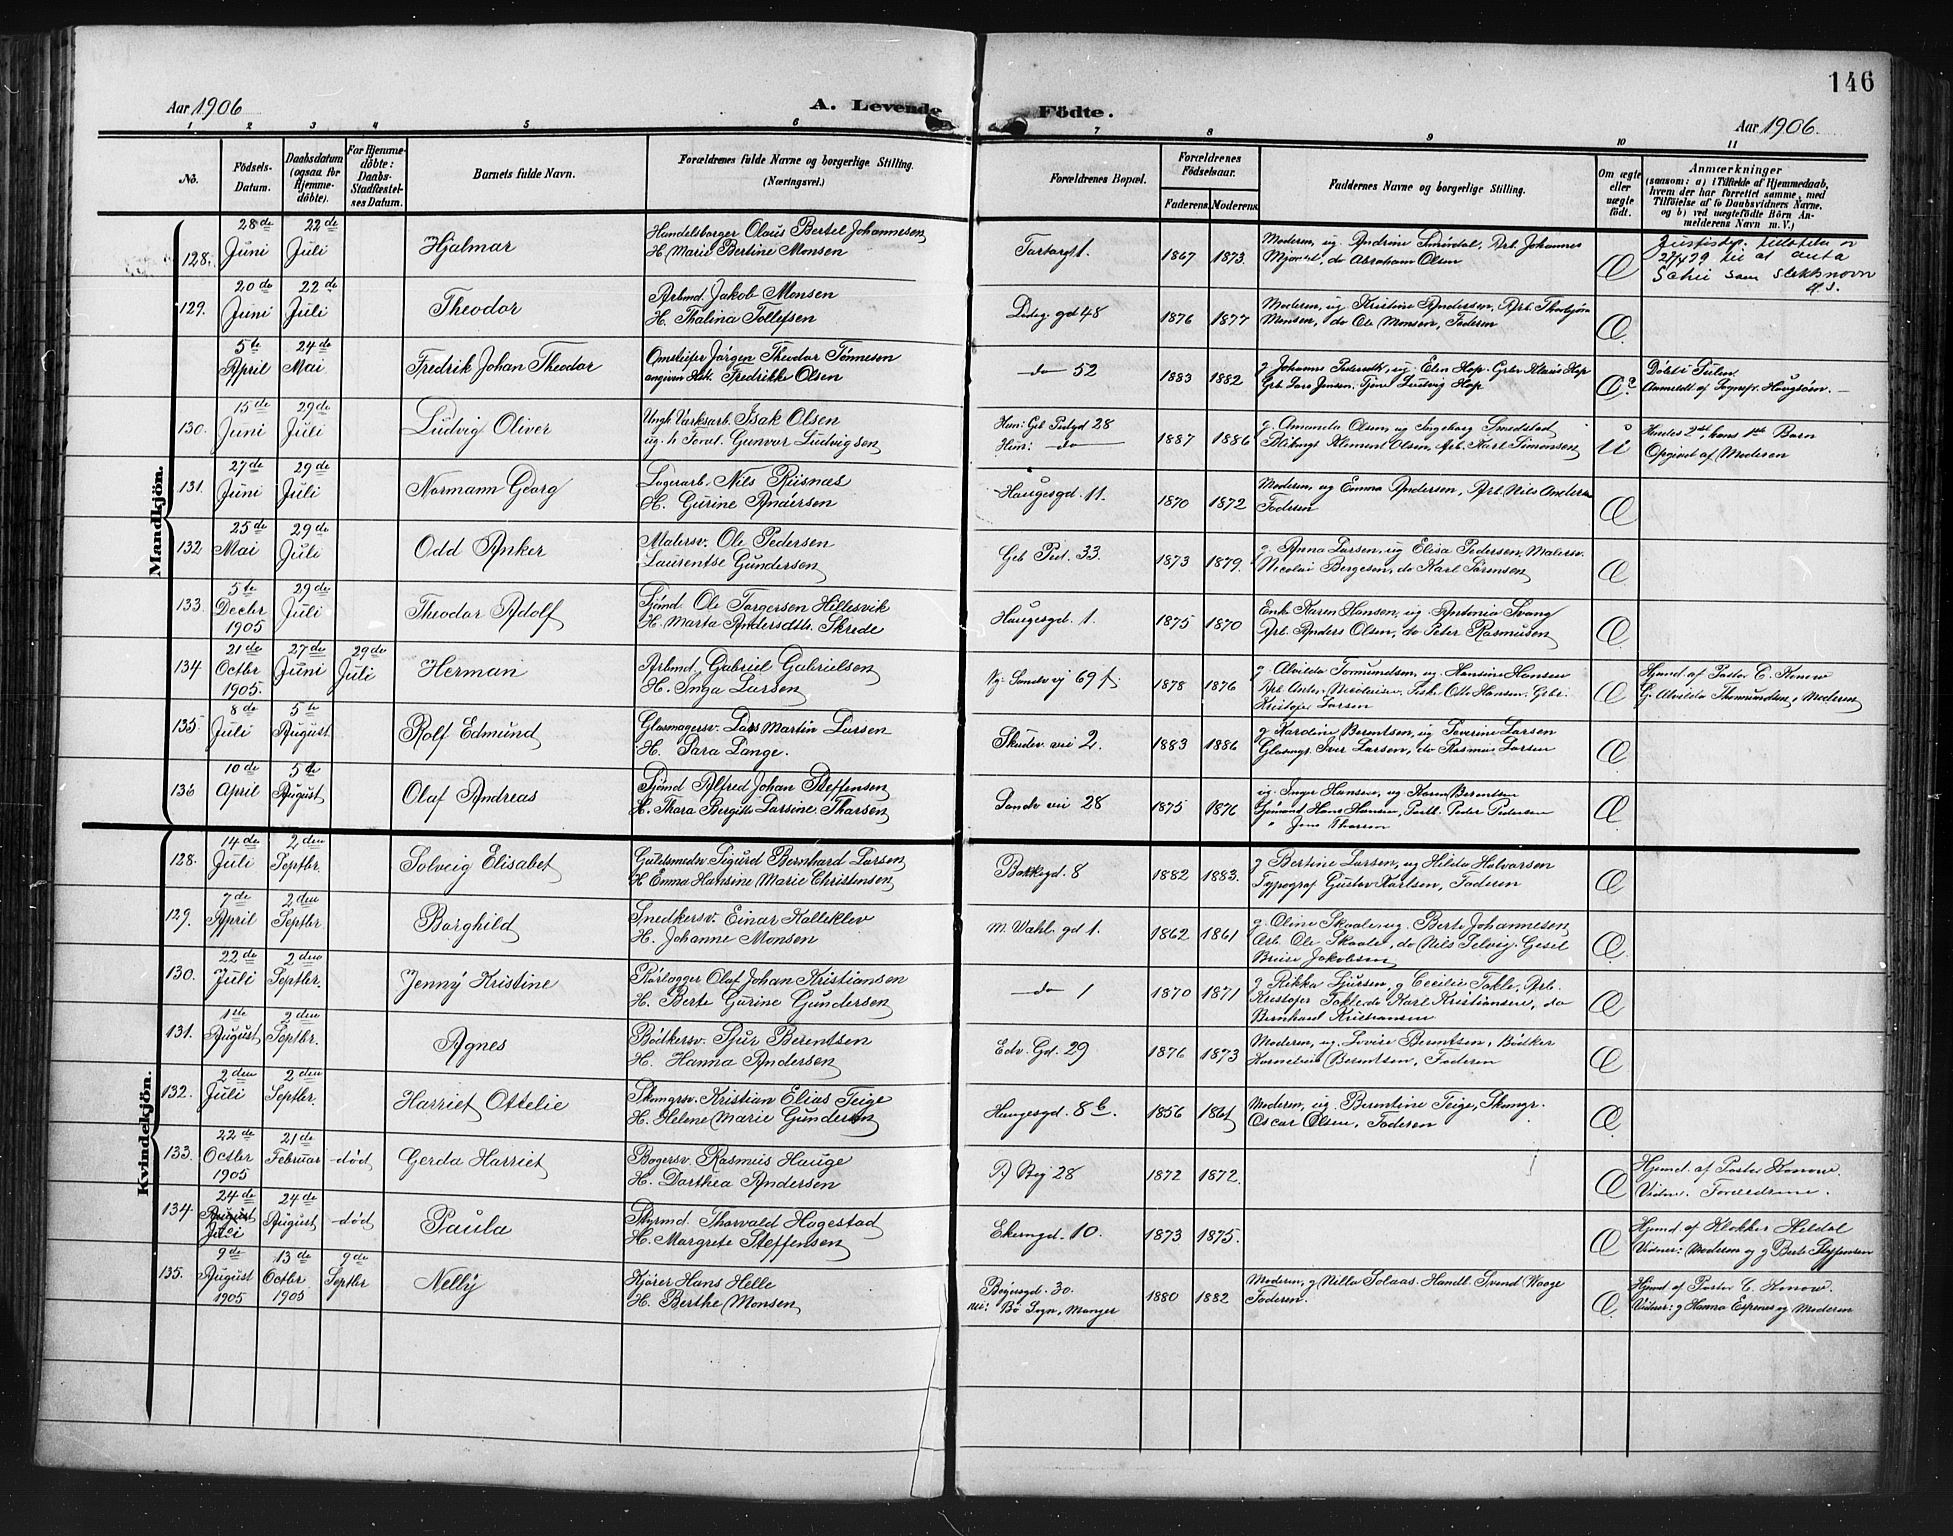 146
Aar 1906
A. Levende Födte.
Aar 1906.
1 2 3 4 5 6 7 8 9 10 11
No.
Födsels-Datum.
Daabsdatum (ogsaa for Hjemme-döbte).
For Hjemme-döbte: Daabs-Stadfæstel-ses Datum.
Barnets fulde Navn.
Forældrenes fulde Navne og borgerlige Stilling.
(Næringsvei.)
Forældrenes Bopæl.
Forældrenes Födselsaar.
Faderens. Moderens.
Faddernes Navne og borgerlige Stilling.
Om ægte eller uægte födt.
Anmærkninger
(saasom: a) i Tilfælde af Hjemmedaab, hvem der har forrettet samme, med Tilföielse af to Daabsvidners Navne, og b) ved uægtefödte Börn An-melderens Navn m. V.)
Mandkjön.
128. 28de Juni 22de Juli Hjalmar
Handelsborger Olaus Bertel Johannesen
H. Marie Bertine Monsen
1867 1873.
Moderen, ug. Andrine Smördal, Arb. Johannes
Mjordal, do Abraham Olsen
Æ
Justisdep. tillatelse av
27/4 29 til at anta
Schie som slektsnavn
129. 20de Juni 22de Juli Theodor
Arbmd. Jakob Monsen
H. Thalina Tollefsen
gd 48 1876 1877
Moderen, ug Kristine Andersen, Arb. Thorbjörn
Monsen, do Ole Monsen, Faderen
Æ
5te April 24de Mai Fredrik Johan Theodor
Omstreifer Jörgen Theodor Tönnesen
angiven Hst. Fredrikke Olsen
— do — 52 1883 1882
Æ?
Anmeldt af Sognepr. Haugsöen. —
130. 15de Juni 29de Juli Ludvig Oliver
Ungk. Værksarb. Isak Olsen
ug. h. Gunvor Ludvigsen
28
— do — 1887 1886
g. Amanda Olsen, ug Ingeborg Smedstad
Klement Olsen, Arb. Karl Simonsen
U
Hendes 2det, hans 1ste Barn
Opgivet af Moderen
131. 27de Juni 29de Juli Normann Georg
Lagerarb. Nils Risnæs
H. Gurine Andersen
Haugesgd. 11. 1870 1872
Moderen, ug Emma Andersen, Arb. Nils Andersen
Faderen
Æ
132 25de Mai 29de Juli Odd Anker
Malersv. Ole Pedersen
Laurentse Gundersen
Geb Pest. 33. 1873 1879.
g. Anna Larsen, ug Elisa Pedersen, Malersv.
Nicolai Bergesen, do Karl Sörensen
Æ
133. 5te Decbr 1905 29de Juli Theodor Adolf
Sjömd. Ole Torgersen Hillesvik
H. Marta Andersdtt. Skrede
Haugesgd. 1. 1875 1870
Enke Karen Hansen, ug. Antonia Svang
Arb. Anders Olsen, do Peter Rasmusen
Æ
134 21de Octbr 1905. 27de Juni 29de Juli Herman
Arbmd. Gabriel Gabrielsen
H. Inga Larsen
69 f. 1878 1876
g. Alvilda Tomundsen, ug Hansine Hansen
Otto Hansen,
Kristofer Larsen
Æ
Hjemd. af Pastor C. Konow
Alvilda Thommundsen, Moderen
135. 8de Juli 5te August Rolf Edmund
Glasmagersv. Lars Martin Larsen
H. Sara Lange.
Skudev. vei 2. 1883 1886
g Karoline Berentsen, ug Severine Larsen
Glasmgr. Iver Larsen, do Rasmus Larsen
Æ
136 10de April 5te August Olaf Andreas
Sjömd Alfred Johan Steffensen
H. Thora Bergitte Larsine Tharsen
Sandv. vei 28 1875 1876
ug. Inger Hansen, ug. Karen Berentsen
Sjömand Hans Hansen, Peder Pedersen
" Jens Tharsen
Æ
Kvindekjön.
128. 14de Juli 2den Septbr. Solveig Elisabet
Guldsmedsv. Sigurd Bernhard Larsen
H Emma Hansine Marie Christensen
Bakkegd. 8 1882 1883.
g Bertine Larsen, ug Hilda Halvorsen
Typograf Gustav Karlsen, Faderen
Æ
129. 7de April 2den Septbr. Borghild
Snedkersv. Einar Kalleklev
H. Johanne Monsen
M. Wahl. gd 1. 1862 1861
g. Oline Skaale, ug. Berte Johannesen
Arb. Ole Skaale, do Nils Selvig, Gesel
Jakobsen
Æ
130. 22de Juli 2den Septbr. Jenny Kristine
Rörlægger Olaf Johan Kristiansen
H. Berte Gurine Gundersen
— do — 1 1870 1871
g Rikka Sjursen, g Cecilie Tokle, Arb.
Kristofer Tokle, do Karl Kristiansen, do
Bernhard Kristiansen
Æ
131. 1ste August 2den Septbr. Agnes
Bödkersv. Sjur Berentsen
H. Hanna Andersen
Edv. Gd. 29 1876 1873
Moderen, ug. Lovise Berentsen, Bödker
Kornelius Berentsen, Faderen
Æ
132. 2den Juli 2den Septbr. Harriet Ottelie
Skomgrsv. Kristian Elias Teige
H. Helene Marie Gundersen
Haugesgd. 8 b. 1856 1861
Moderen, ug. Berentine Teige, Skomgr.
Oscar Olsen, Faderen
Æ
133. 22de Octbr 1905 21de Februar —död Gerda Harriet
Bagersv. Rasmus Hauge
H. Dorthea Andersen
28 1872 1872.
Æ
Hjemd. af Pastor Konow.
Vidner: Forældrene.
134. 24de August Juli 24de August —död Paula
Styrmd. Thorvald Hogestad
H. Margrete Steffensen
Ekerngd. 10. 1873 1875.
Æ
Hjemd af Klokker Hildal
Vidner: Moderen og g Berte Steffensen
135. 9de August 1905 13de Octbr 1905 9de Septbr Nelly
Kjörer Hans Helle
H. Berthe Monsen
30.
Bö Sogn, Manger 1880 1882
Moderen, g Nilla Solaas. Handl. Svend Waage
Faderen.
Æ
Hjemd af Pastor C. Konow.
Vidner: g Hanna Espenes og Moderen